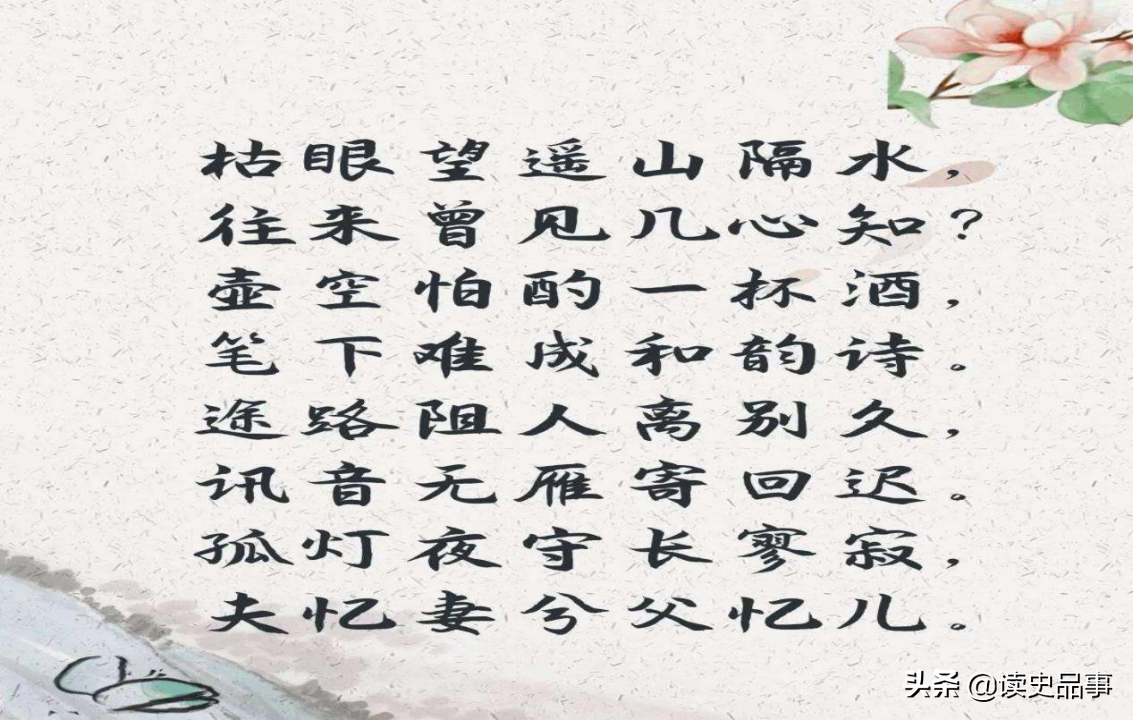 枯眼望遥山隔水，
往来曾见几心知？
壶空怕酌一杯酒，
笔下难成和韵诗。
途路阻人离别久，
讯音无雁寄回迟。
孤灯夜守长寥寂，
夫忆妻兮父忆儿。
头条 @读史品事